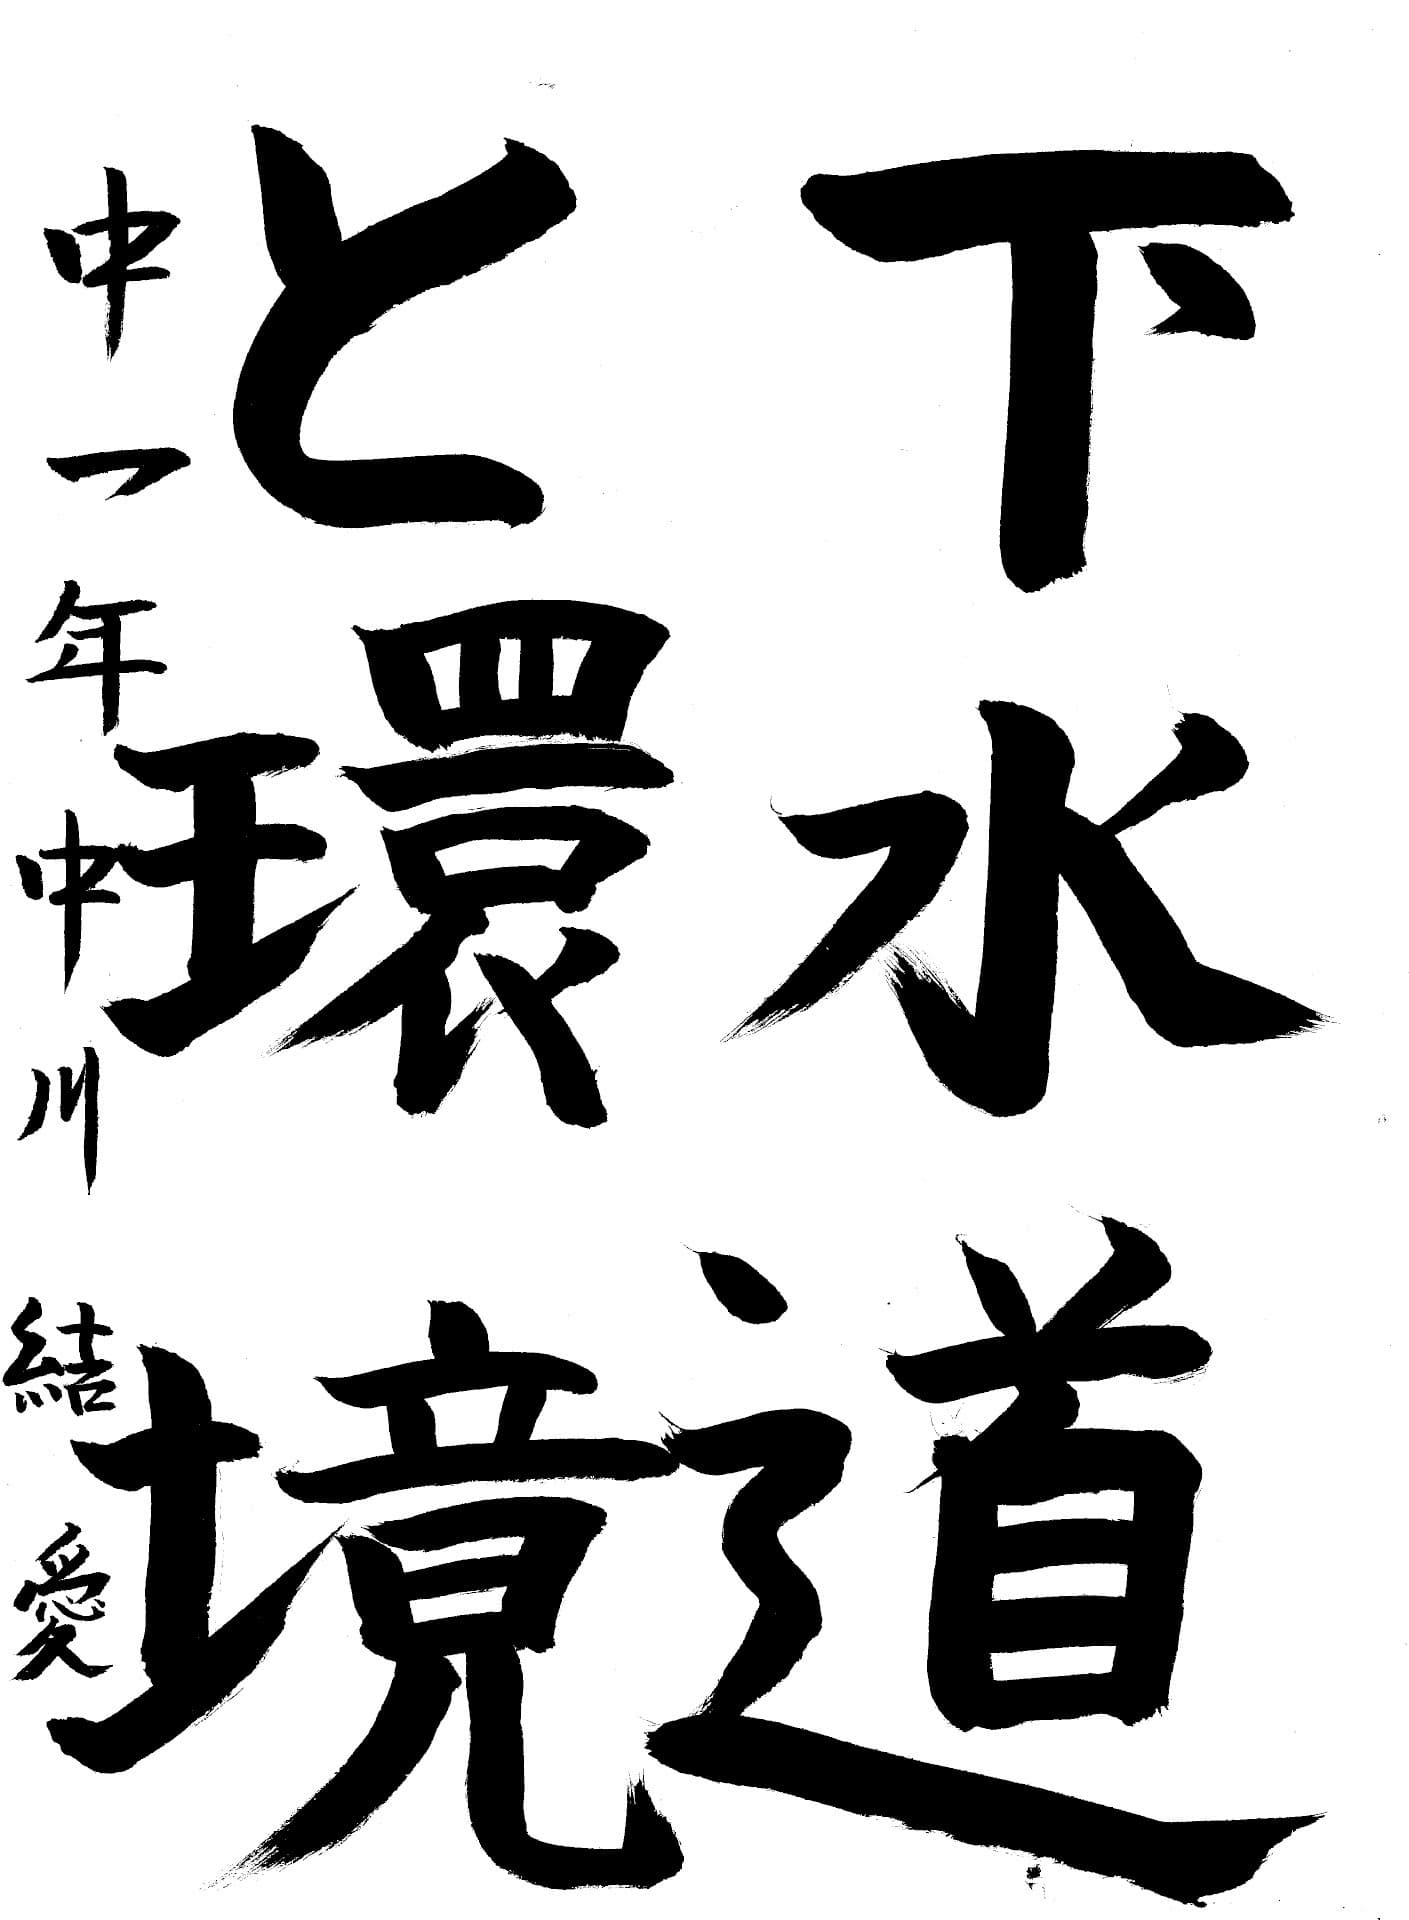 下水道
と環境
中一年 中川 結愛